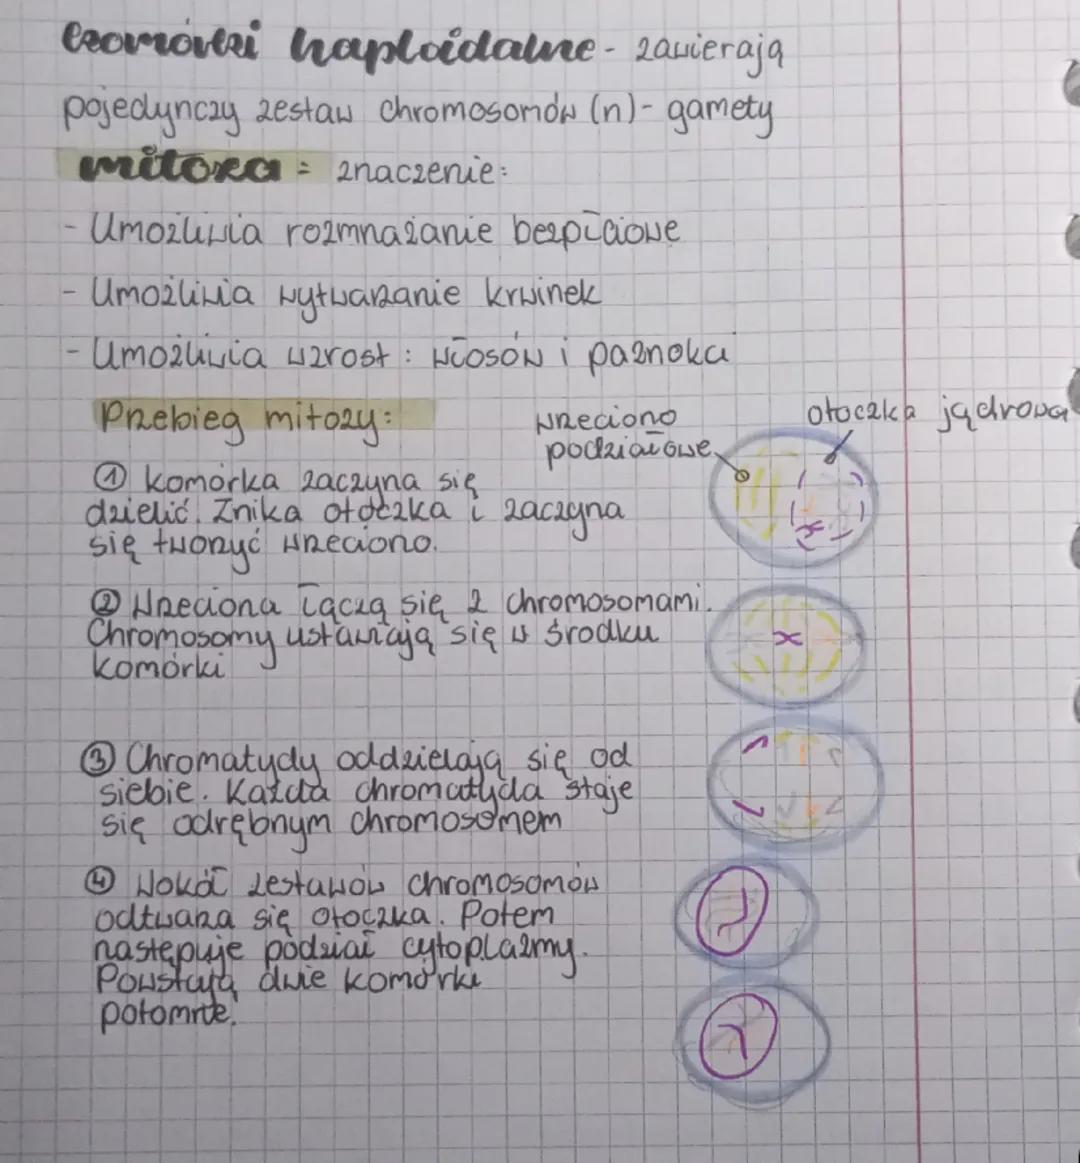 komórki haploidalne - zawierają
pojedynczy zestaw chromosomów (n) - gamety
mitoza = znaczenie:
- Umożliwia rozmnażanie bezpłciowe
- Umożliwia wytwarzanie krwinek
- Umożliwia wzrost : włosów i paznokci
Przebieg mitozy:
wrzeciono
podziałowe
otoczka jądrowa
① komórka zaczyna się
dzielić. Znika otoczka i zaczyna
się tworzyć wrzeciono.
② Wrzeciona łączą się z chromosomami.
Chromosomy ustawiają się w środku
komórki
③ Chromatydy oddzielają się od
siebie. Każda chromatyda staje
się odrębnym chromosomem
④ Wokół zestawów chromosomów
odtwarza się otoczka. Potem
następuje podział cytoplazmy.
Powstają dwie komórki
potomne.